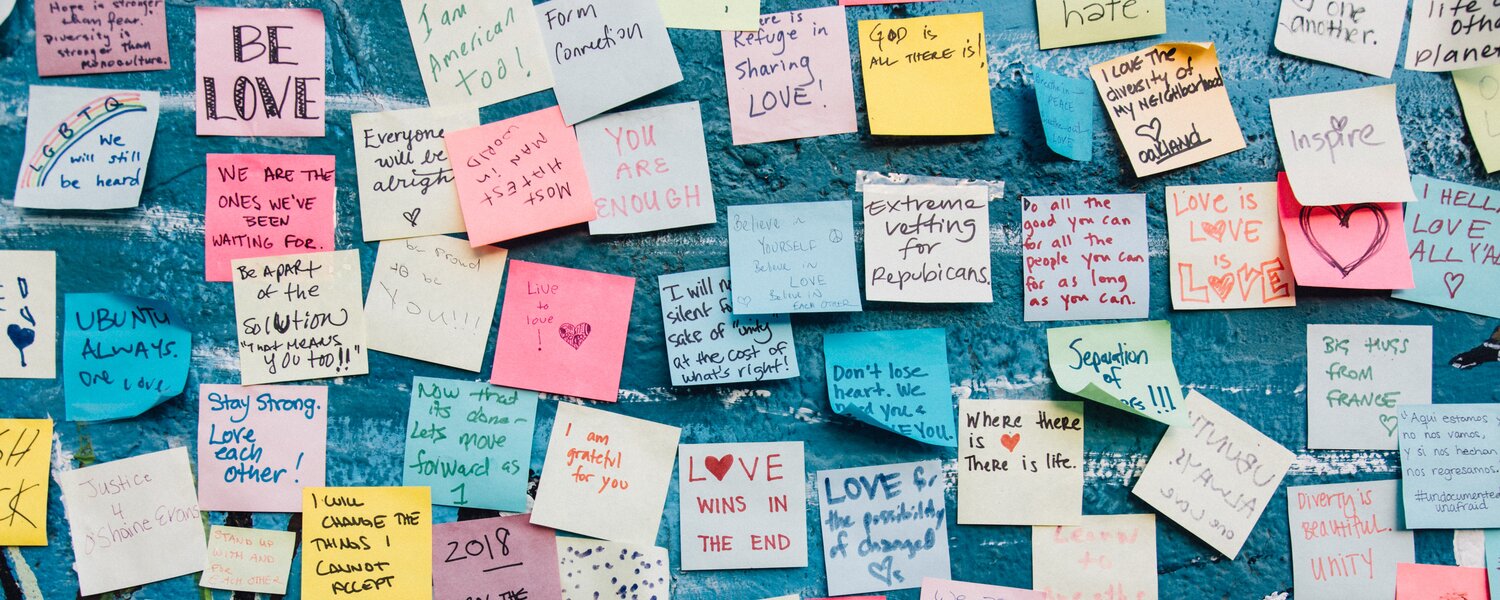 Hope is stronger
than fear.
Diversity is
stronger than
monoculture.
BE
LOVE
I am
American
too!
Form
Connection
There is
Refuge in
Sharing
LOVE!
GOD is
ALL THERE IS!
hate.
one
another.
life
other
planet
LGBTQ
We
will still
be heard
WE ARE THE
ONES WE'VE
BEEN
WAITING FOR.
Everyone
will be
alright
MOST
HATEST
MAN IN
WORLD
YOU
ARE
ENOUGH
PEACE
LOVE
I LOVE THE
diversity of
MY NEIGHBORHOOD
OAKLAND
Inspire
Believe in
YOURSELF
Believe in
LOVE
Believe IN
EACH OTHER
Extreme
vetting
for
Repubicans.
Do all the
good you can
for all the
people you can
for as long
as you can.
Love is
LOVE
is
LOVE
I HELL
LOVE
ALL Y'AL
UBUNTU
ALWAYS.
One Love.
Be APart
of the
SOLUTION
"THAT MEANS
YOU TOO!!"
be proud
to be
YOU!!!
Live
to
love
!
I will no
silent fo
sake of "unity"
at the cost of
what's right!
Don't lose
heart. We
need you &
YOU.
Separation
of
!!!
BIG HUGS
FROM
FRANCE
Stay Strong.
Love
each
other!
Now that
its done-
Lets move
forward as
1
I am
grateful
for you
LOVE
WINS IN
THE END
LOVE for
the possibility
of changed
Where there
is
There is life.
UBUNTU
ALWAYS.
one love
"Aqui estamos y
no nos vamos,
y si nos hechan
nos regresamos.
#undocumented
unafraid
Justice
4
O'Shaine Evans
STAND UP
WITH AND
FOR
EACH OTHER
I WILL
CHANGE THE
THINGS I
CANNOT
ACCEPT
2018
THE
Learn
to
Diverty is
Beautiful.
UNITY